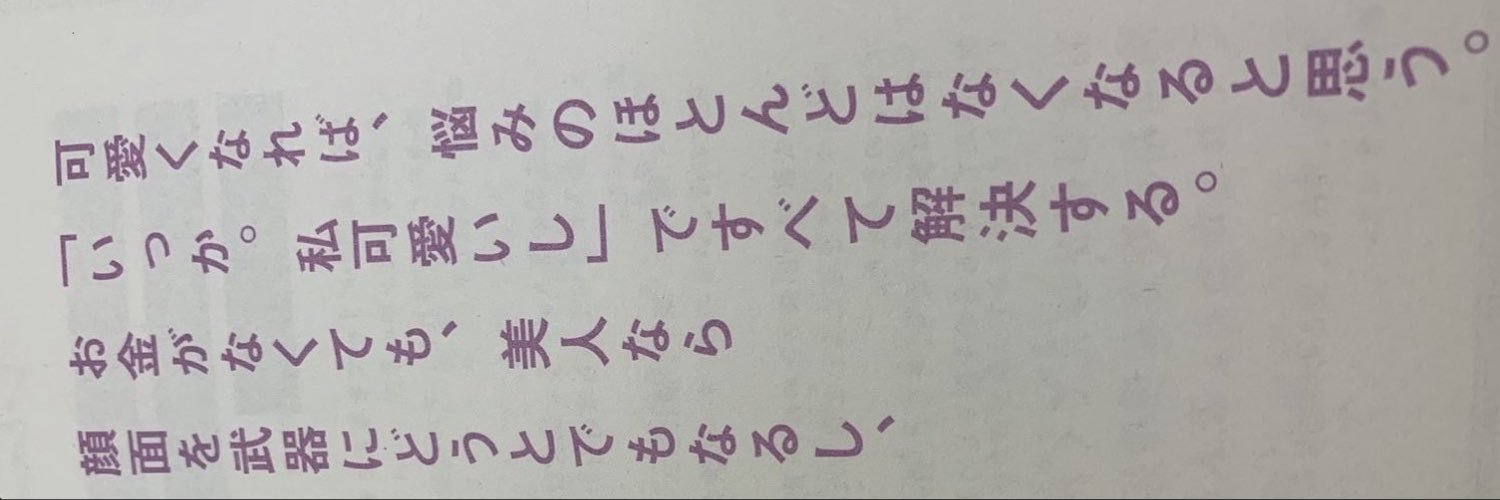 可愛くなれば、悩みのほとんどはなくなると思う。
「いっか。私可愛いし」ですべて解決する。
お金がなくても、美人なら
顔面を武器にどうとでもなるし、